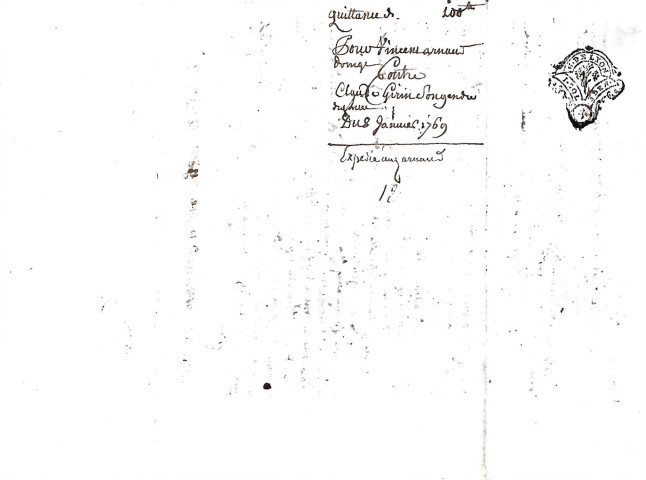 quittance de 200lt
Pour Vincent arnaud
Contre
Claude Girin Son gendre
Du 8 Janvier 1769
Expedié aud arnaud
18